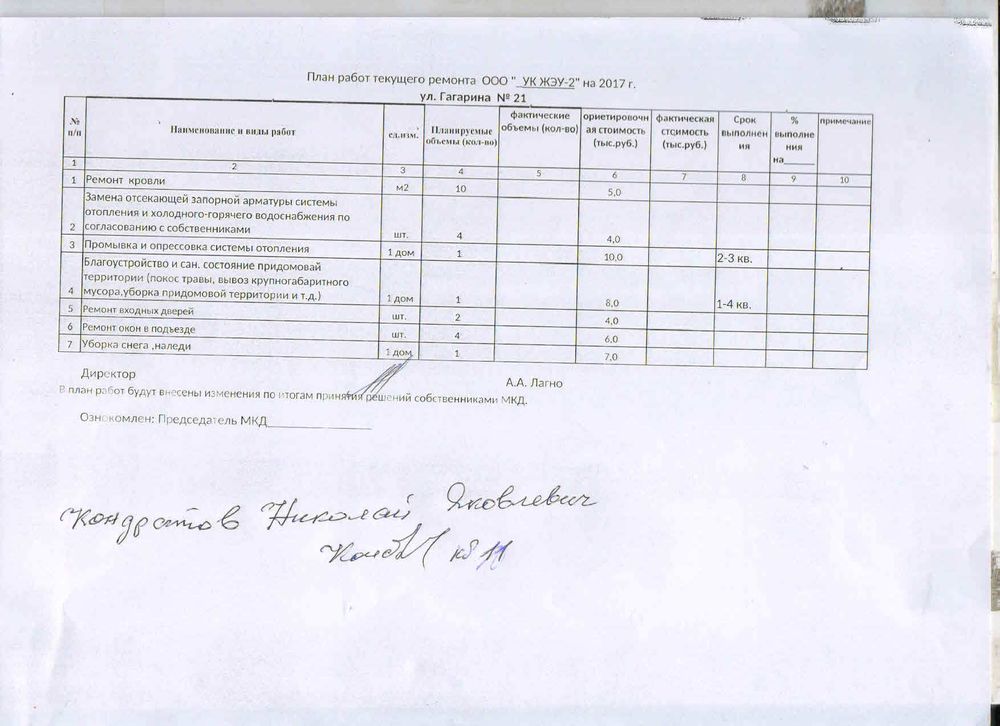 План работ текущего ремонта ООО "_УК ЖЭУ-2" на 2017 г.
ул. Гагарина № 21
№ п/п Наименование и виды работ ед.изм. Планируемые объемы (кол-во) фактические объемы (кол-во) ориетировочная стоимость (тыс.руб.) фактическая стоимость (тыс.руб.) Срок выполнения % выполнения на______ примечание
1 2 3 4 5 6 7 8 9 10
1 Ремонт кровли м2 10 5,0
Замена отсекающей запорной арматуры системы
отопления и холодного-горячего водоснабжения по
2 согласованию с собственниками шт. 4 4,0
3 Промывка и опрессовка системы отопления 1 дом 1 10,0 2-3 кв.
Благоустройство и сан. состояние придомовай
территории (покос травы, вывоз крупногабаритного
4 мусора,уборка придомовой территории и т.д.) 1 дом 1 8,0 1-4 кв.
5 Ремонт входных дверей шт. 2 4,0
6 Ремонт окон в подъезде шт. 4 6,0
7 Уборка снега ,наледи 1 дом 1 7,0
Директор А.А. Лагно
В план работ будут внесены изменения по итогам принятия решений собственниками МКД.
Ознокомлен: Председатель МКД________________
Кондратов Николай Яковлевич
кв 11